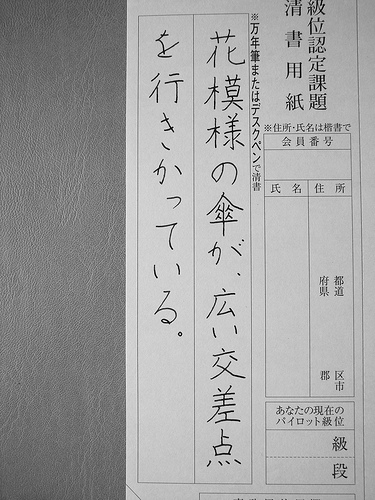 級位認定課題
清書用紙
※住所・氏名は楷書で
会員番号
氏名
住所
都道
府県
区市
郡
あなたの現在の
パイロット級位
級
段
※万年筆またはデスクペンで清書
花模様の傘が、広い交差点
を行きかっている。